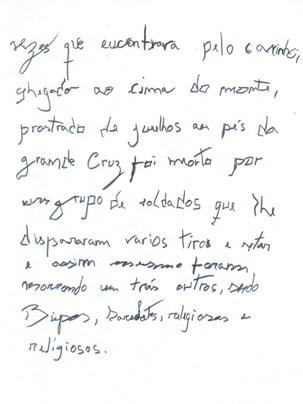 vezes que encontrava pelo caminho,
chegado ao cima do monte,
prostrado de juelhos aos pés da
grande Cruz foi morto por
um grupo de soldados que lhe
dispararam varios tiros e setas
e assim mesmo foram
morrendo uns trás outros,
Bispos, Sacerdotes, religiosas e
religiosos.